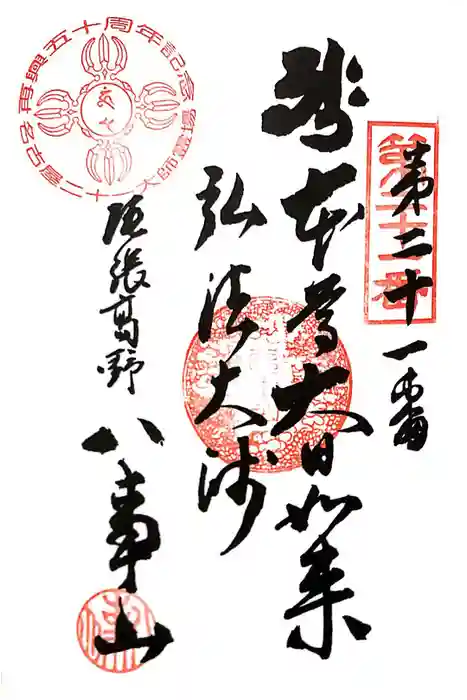 第二十一番
第二十一番
本尊大日如来
弘法大师
再興五十周年記念
名古屋二十一大師霊場
尾張高野
八事山